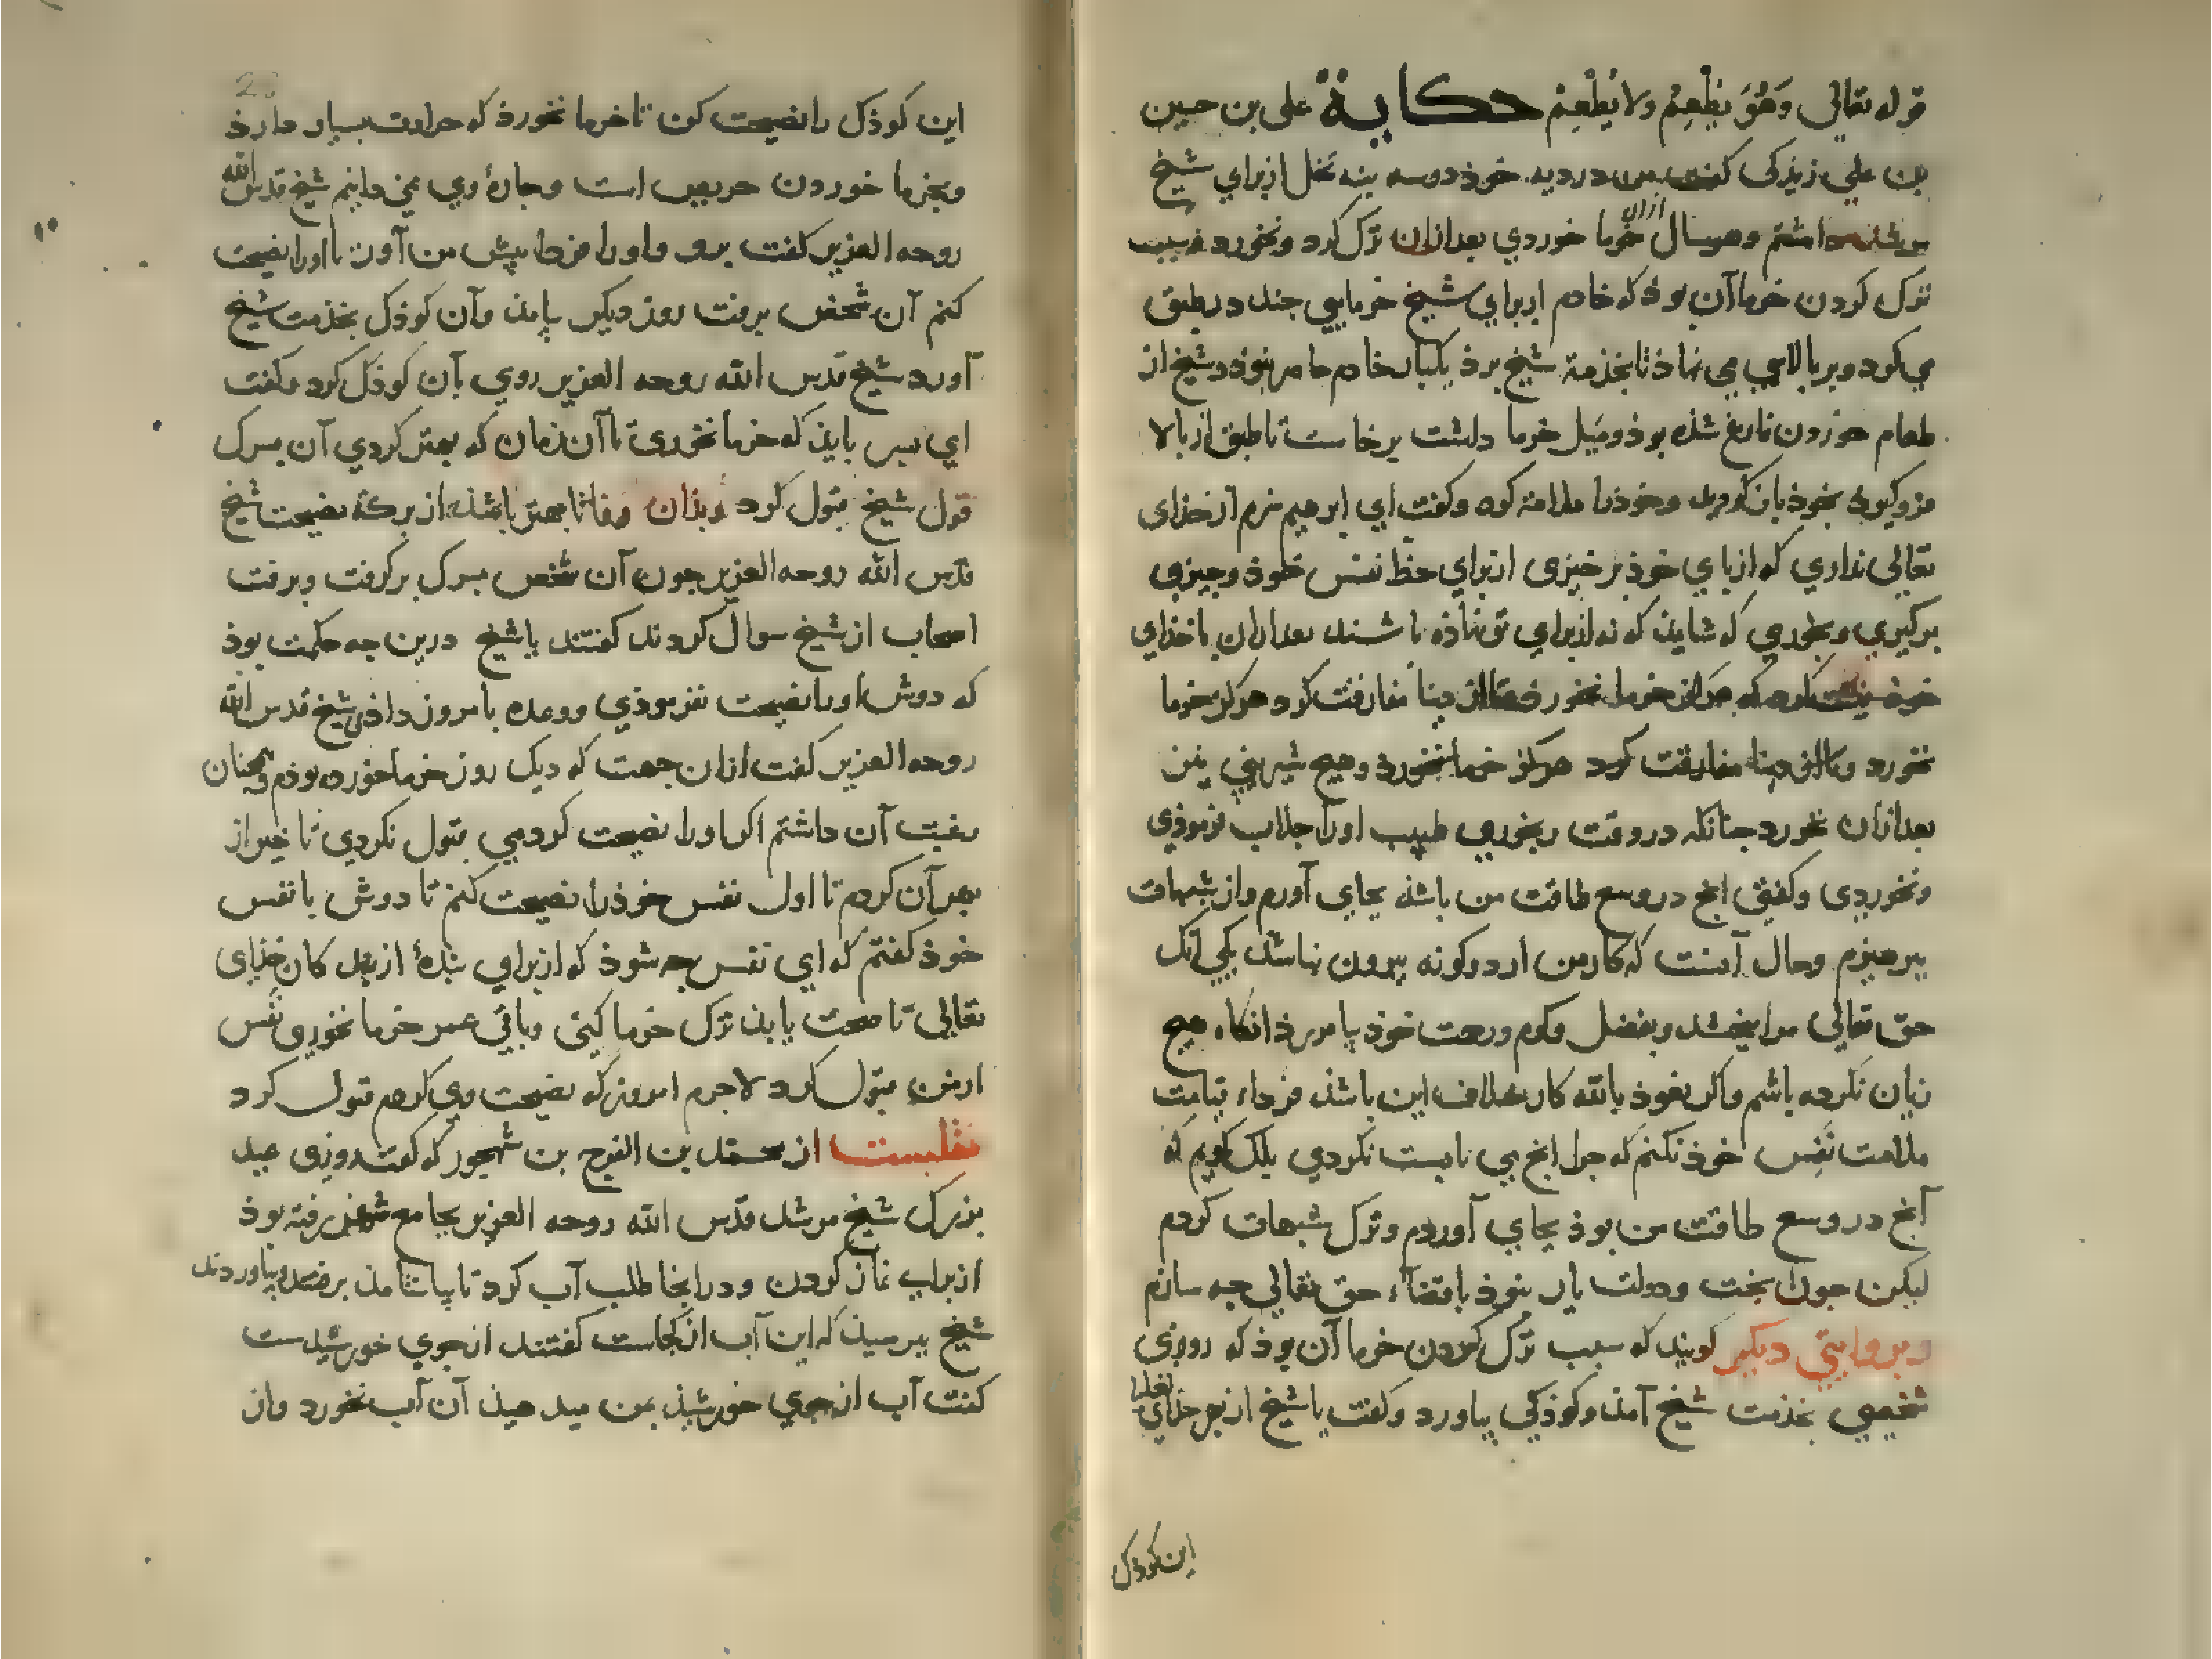 قوله تعالی وَهُوَ یُطْعِمُ ولا یُطْعَمُ حکایة علی بن حسین
بن علی زیذکی کفت من در دیه خوذ دوسه بنه نخل از برای شیخ
مرشد داشتم وهر سال ازان خرما خوردی بعد ازان ترک کرد ونخورد وسبب
ترک کردن خرما آن بوذ که خادم از برای شیخ خرمایی جند در طبق
می کرد وبر بالایی می نهاذ تا بخدمة شیخ برذ یکبار خادم حاضر نبوذ وشیخ از
طعام خوردن فارغ شذه بوذ ومیل خرما داشت برخاست تا طبق از بالا
فرو کیرد بخوذ باز کردید وخوذرا ملامة کرد وکفت ای ابرهیم شرم از خذای
تعالی نداری که از پای خوذ برخیزی از برای حظ نفس خوذ وجیزی
برکیری وبخوری که شایذ که نه از برای تو نهاذه باشند بعد ازان با خذای
خوذ که هرکز خرما نخورد تا از دنیا مفارقت کرد هرکز خرما
نخورد وتا از دنیا مفارقت کرد هرکز خرما نخورد وهیج شیرینی نیز
بعد ازان نخورد جنانکه در وقت رنجوری طبیب اورا جلاب فرموذی
ونخوردی وکفتی انج در وسع طاقت من باشذ بجای آورم واز شبهات
ببرهیزم وحال آنست که کار من از دو کونه بیرون نباشد یکی آنک
حق تعالی مرا ببخشد وبفضل وکرم ورحمت خوذ بیامرزذ انکاه هیج
زیان نکرده باشم واکر نعوذ بالله کار بخلاف این باشذ فرداء قیامت
ملامت نفس خوذ نکنم که جرا انج می بایست نکردی بلک کویم که
آنج در وسع طاقت من بوذ بجای آوردم وترک شبهات کردم
لیکن جون بخت ودولت یار نبوذ با قضاء حق تعالی جه سازم
وبروایتی دیکر کویند که سبب ترک کردن خرما آن بوذ که روزی
شخصی بخذمت شیخ آمذ وکوذکی بیاورد وکفت یا شیخ از بهر خذای تعالی
این کوذک
این کوذک را نصیحت کن تا خرما نخورذ که حرارت بسیار دارذ
وبخرما خوردن حریص است وجارۀ وی نمی دانیم شیخ قدس الله
روحه العزیز کفت برو واورا فردا پیش من آور تا اورا نصیحت
کنم آن شخص برفت روز دیکر بیامذ وآن کوذک بخذمت شیخ
آورد شیخ قدس الله روحه العزیز روی بآن کوذک کرد وکفت
ای پسر بایذ که خرما نخوری تا آن زمان که بهتر کردی آن پسرک
قول شیخ قبول کرد وبذان وفا تا بهتر باشد از برکۀ نصیحت شیخ
قدس الله روحه العزیز جون آن شخص پسرک برکرفت وبرفت
اصحاب از شیخ سوال کردند کفتند یا شیخ درین جه حکمت بوذ
که دوش اورا نصیحت نفرموذی ووعده بامروز داذی شیخ قدس الله
روحه العزیز کفت ازان جهت که دیک روز خرما خورده بوذم وهمجنان
رغبت آن داشتم اکر اورا نصیحت کردمی قبول نکردی تاخیر از
بهر آن کردم تا اول نفس خوذرا نصیحت کنم تا دوش با نفس
خوذ کفتم که ای نفس جه شوذ که از برای بندۀ از بندکان خذای
تعالی تا صحت یابذ ترک خرما کنی وباقی عمر خرما نخوری نفس
از من قبول کرد لاجرم امروز که نصیحت وی کردم قبول کرد
نقلیست از محمد بن الفرج بن شهجور که کفت روزی عید
بزرک شیخ مرشد قدس الله روحه العزیز بجامع رفته بوذ
از برای نماز کردن ودر انجا طلب آب کرد تا بیاشامذ برفتند وبیاوردند
شیخ ببرسیذ که این آب از کجاست کفتند از جوی خورشیدست
کفت آب از جوی خورشیذ بمن میدهیذ آن آب نخورد واز